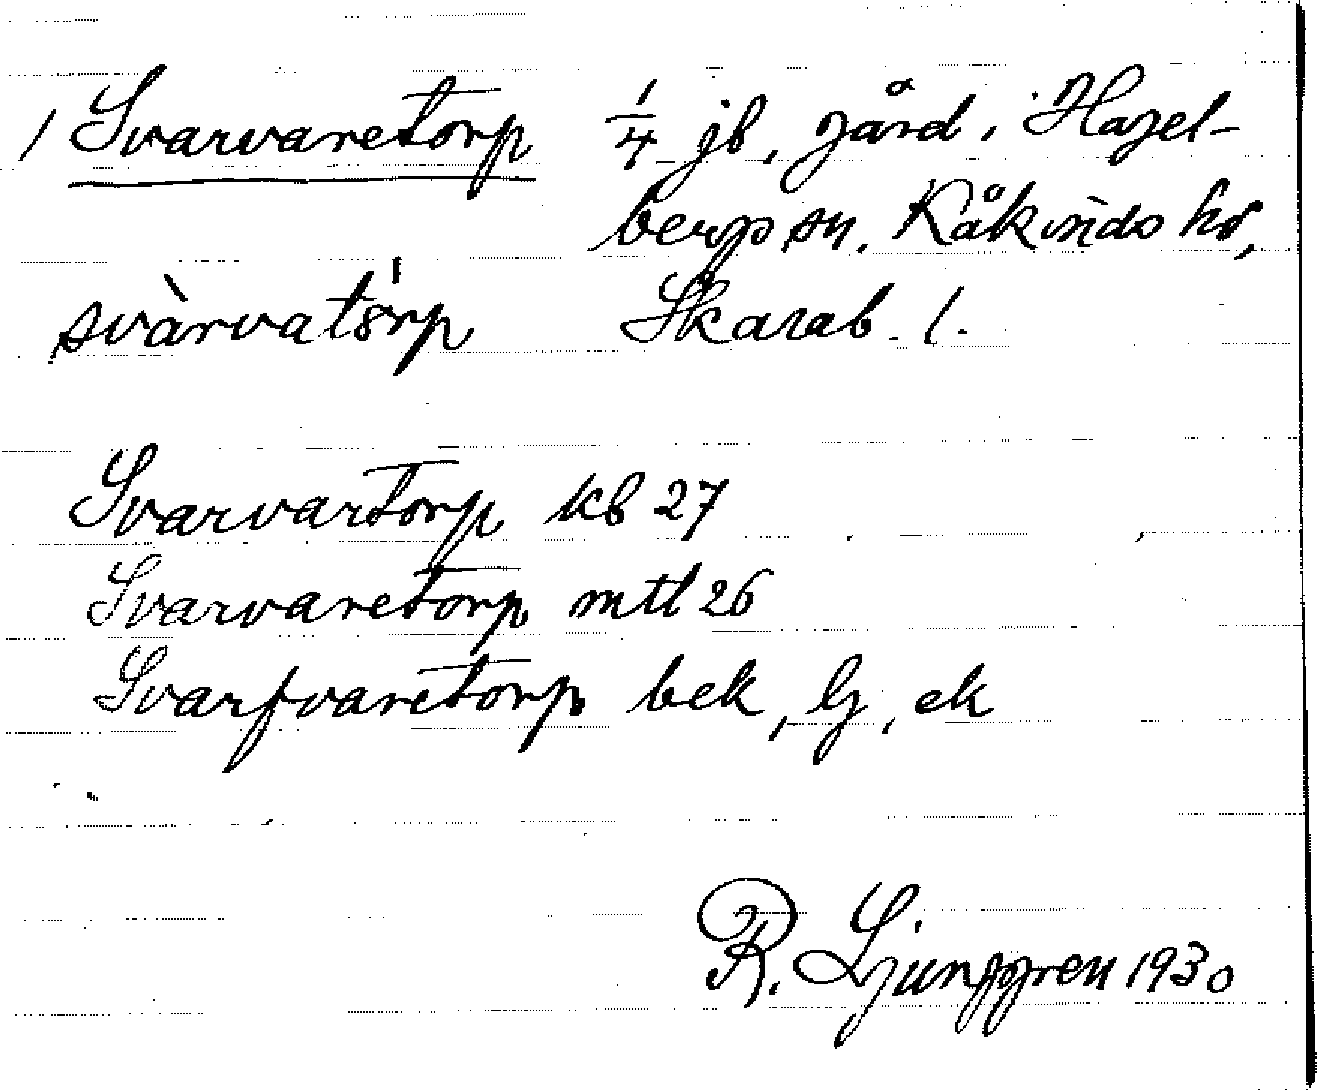 / Svarvaretorp 1/4 jb, gård i Hagel-
berg sn. Kåkinds hd,
svàrvató̈rp Skarab. l.
Svarvartorp kb 27
Svarvaretorp mtl 26
Svarfvaretorp bek, lj, ek
R. Ljunggren 1930